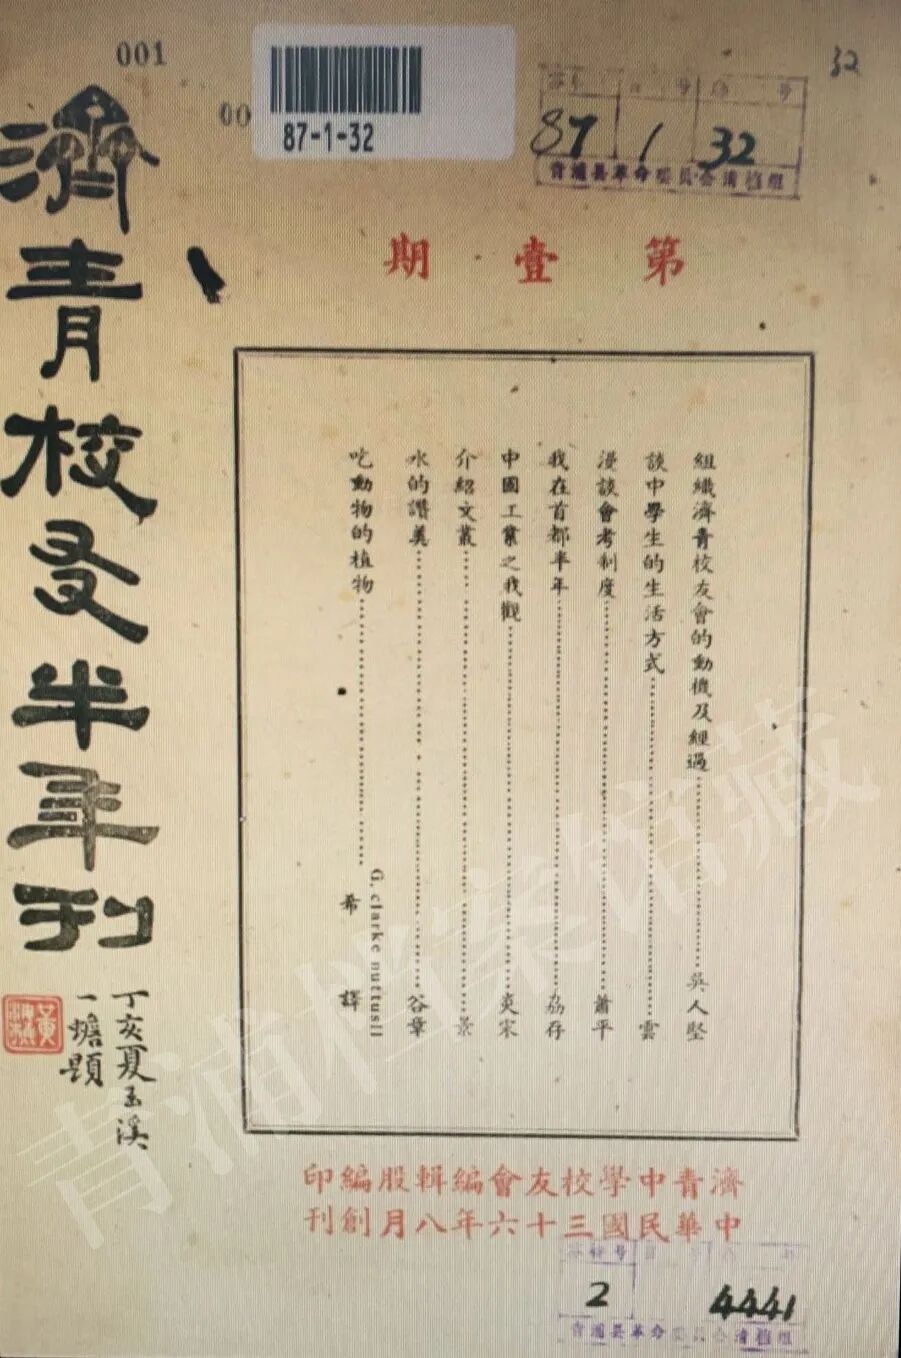 001
00
87-1-32
32
87 1 32
青浦县革命委員会清档組
第壹期
濟青校友半年刊
丁亥夏玉溪
一蟾題
組織濟青校友會的動機及經過 吳人堅
談中學生的生活方式 雲
漫談會考制度 蕭平
我在首都半年 荔存
中國工業之我觀 奕宋
介紹文叢 景
水的讚美 谷章
吃動物的植物 G. clarke nuttusll
希譯
濟青中學校友會編輯股編印
中華民國三十六年八月創刊
2 4441
青浦县革命委員会清档組
青浦档案馆藏